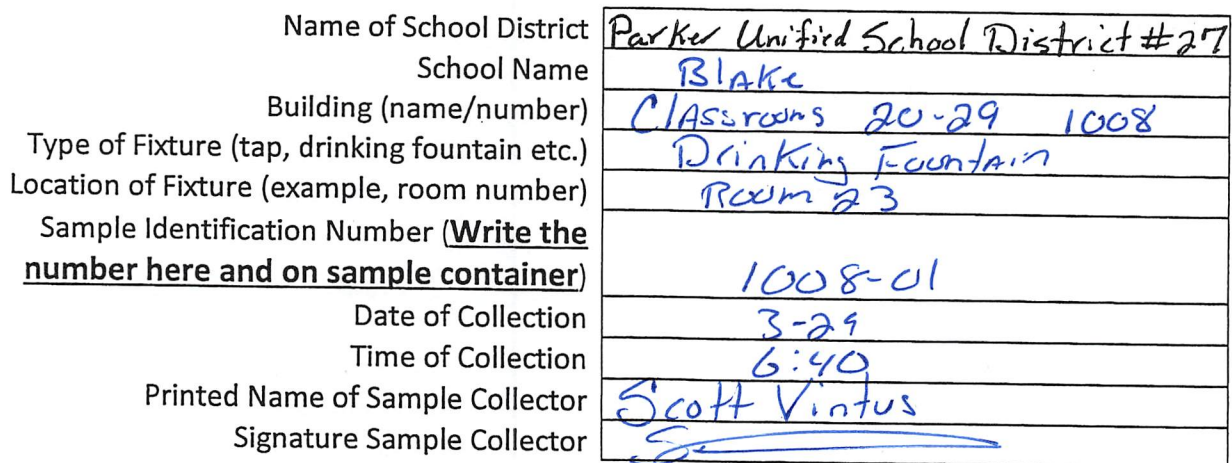 Name of School District Parker Unified School District #27
School Name Blake
Building (name/number) Classrooms 20-29 1008
Type of Fixture (tap, drinking fountain etc.) Drinking Fountain
Location of Fixture (example, room number) Room 23
Sample Identification Number (Write the
number here and on sample container) 1008-01
Date of Collection 3-29
Time of Collection 6:40
Printed Name of Sample Collector Scott Vintus
Signature Sample Collector